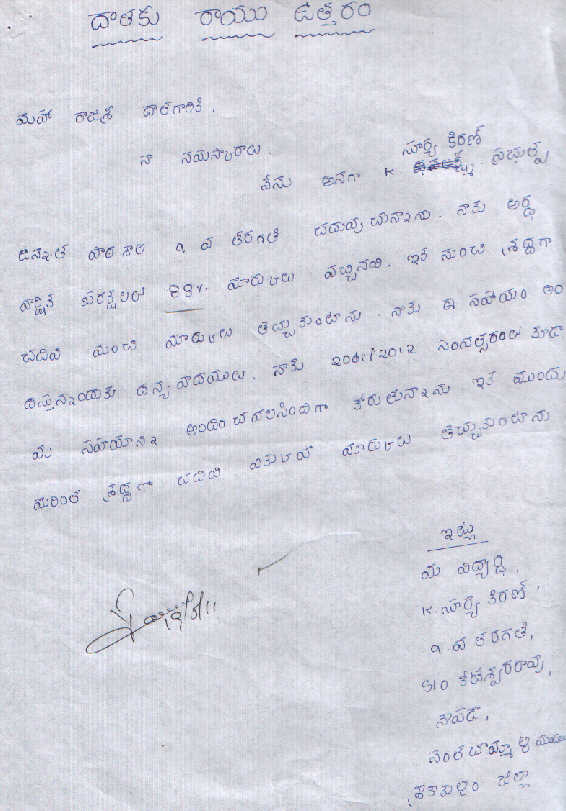 దాతకు రాయు ఉత్తరం
మహా రాజశ్రీ దాతగారికి.
నా నమస్కారాలు.
సూర్య కిరణ్
నేను అనగా K ప్రభుత్వ
ఉన్నత పాఠశాల 9 వ తరగతి చదువుచున్నాను. నాకు అర్ధ
పరీక్షలలో 89% మార్కులు వచ్చినవి. ఇక నుండి శ్రద్ధగా
చదివి మంచి మార్కులు తెచ్చుకుంటాను. నాకు ఈ సహాయం అం
దిస్తున్నందుకు ధన్యవాదములు. నాకు 2011/2012 సంవత్సరంలో కూడా
మీ సహాయాన్ని అందించగలసిందిగా కోరుతున్నాను ఇక ముందు
మరింత శ్రద్ధగా చదివి ఎక్కువ మార్కులు తెచ్చుకుంటాను
ఇట్లు
మీ విద్యార్థి,
K. సూర్య కిరణ్,
9 వ తరగతి,
S/O కేదేశ్వరరావు,
సంతబొమ్మాళి మండ
శ్రీకాకుళం జిల్లా